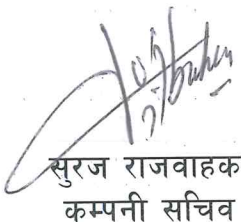 सुरज राजवाहक
कम्पनी सचिव